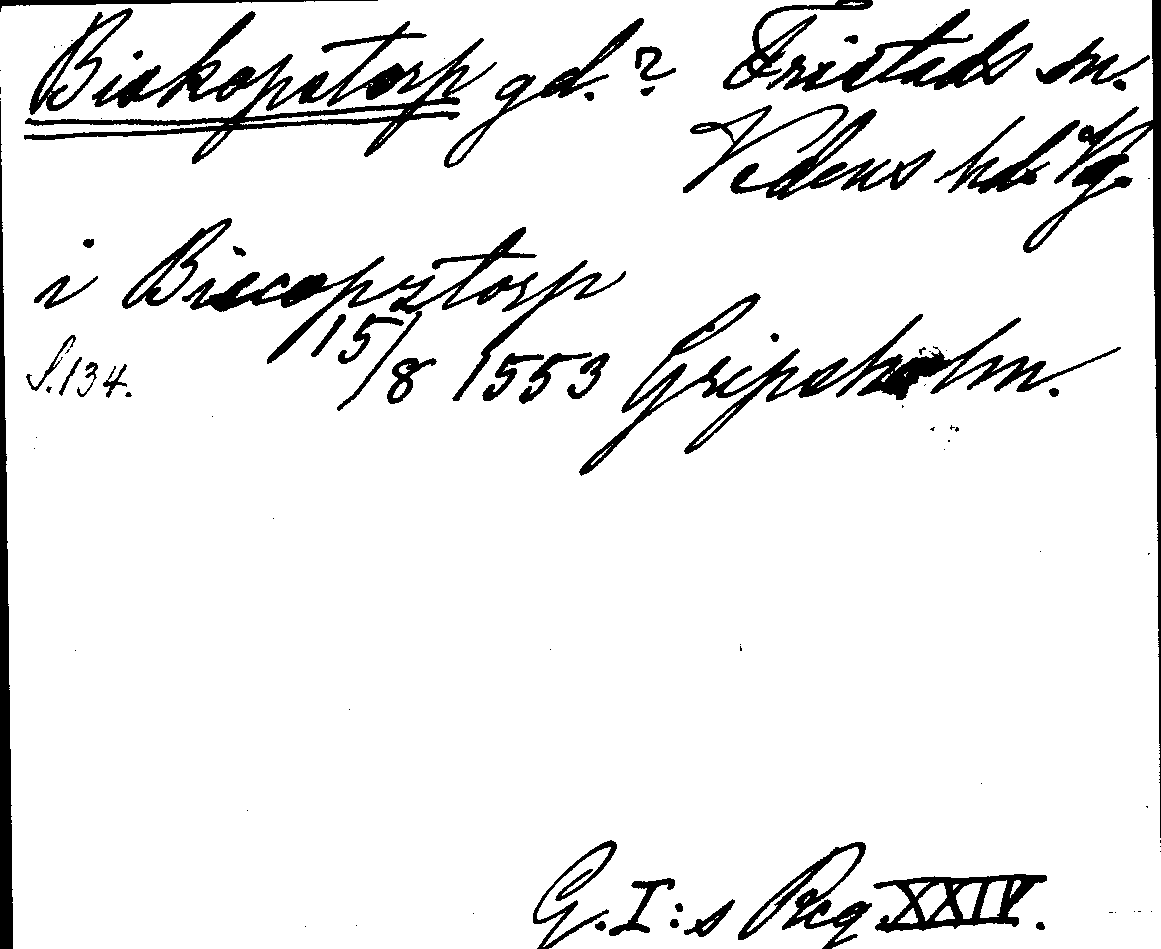 Biskopstorp gd.? Fristads sn.
Vedens hd. Vg.
i Biscopztorp
S.134. 15/8 1553 Gripsholm.
G.I:s Reg. XXIV.